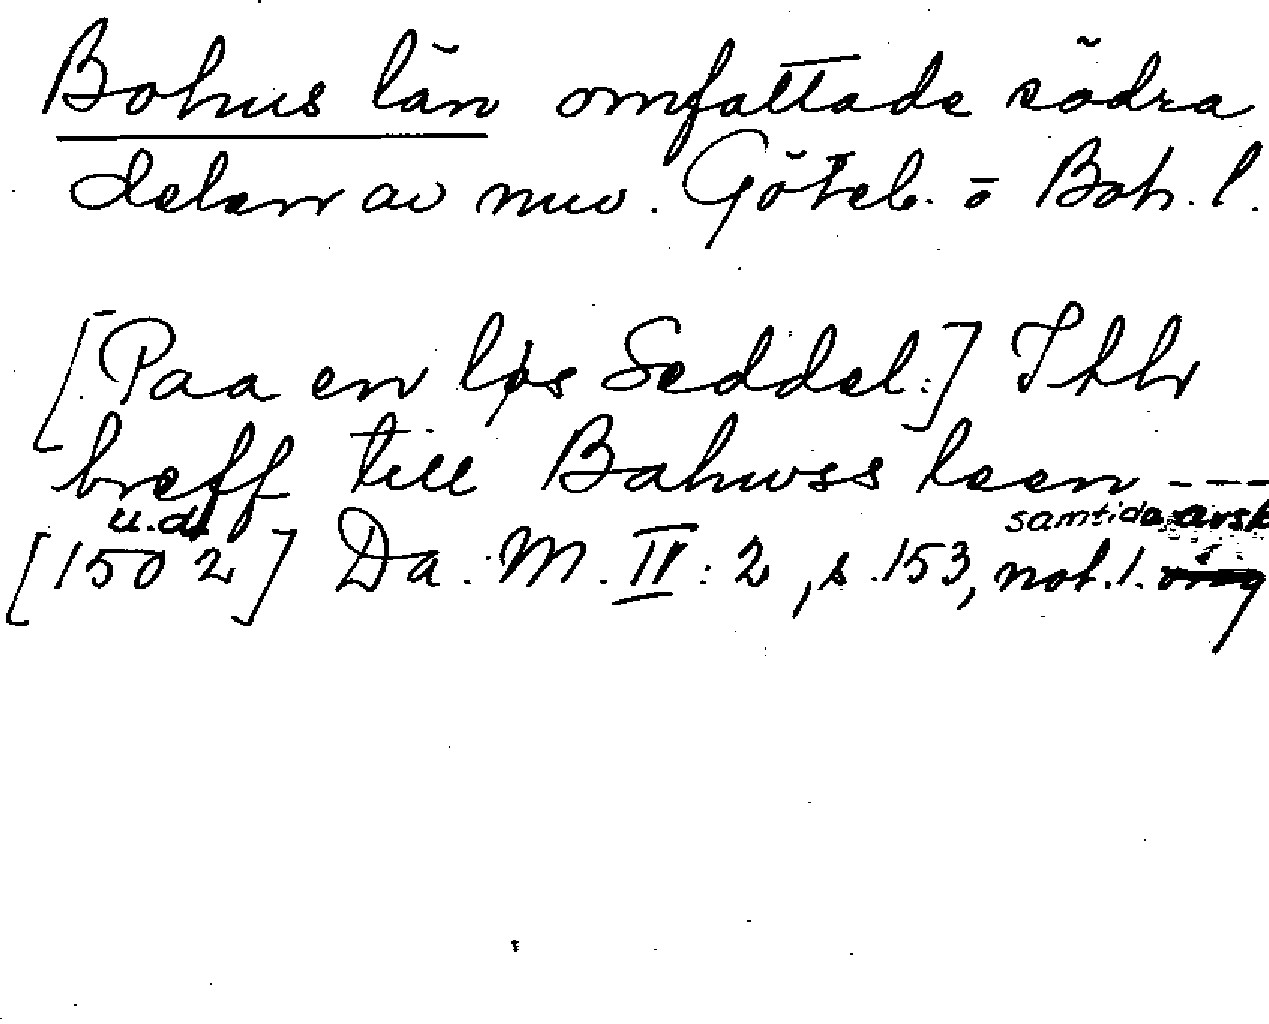 Bohus län omfattade södra
delen av nuv. Göteb. o Boh. l.
[Paa en løs Seddel:] Ithr
breff till Bahwss leen ---
u.d. samtida avskr
[1502] Da. M. II: 2, s. 153, not. 1.